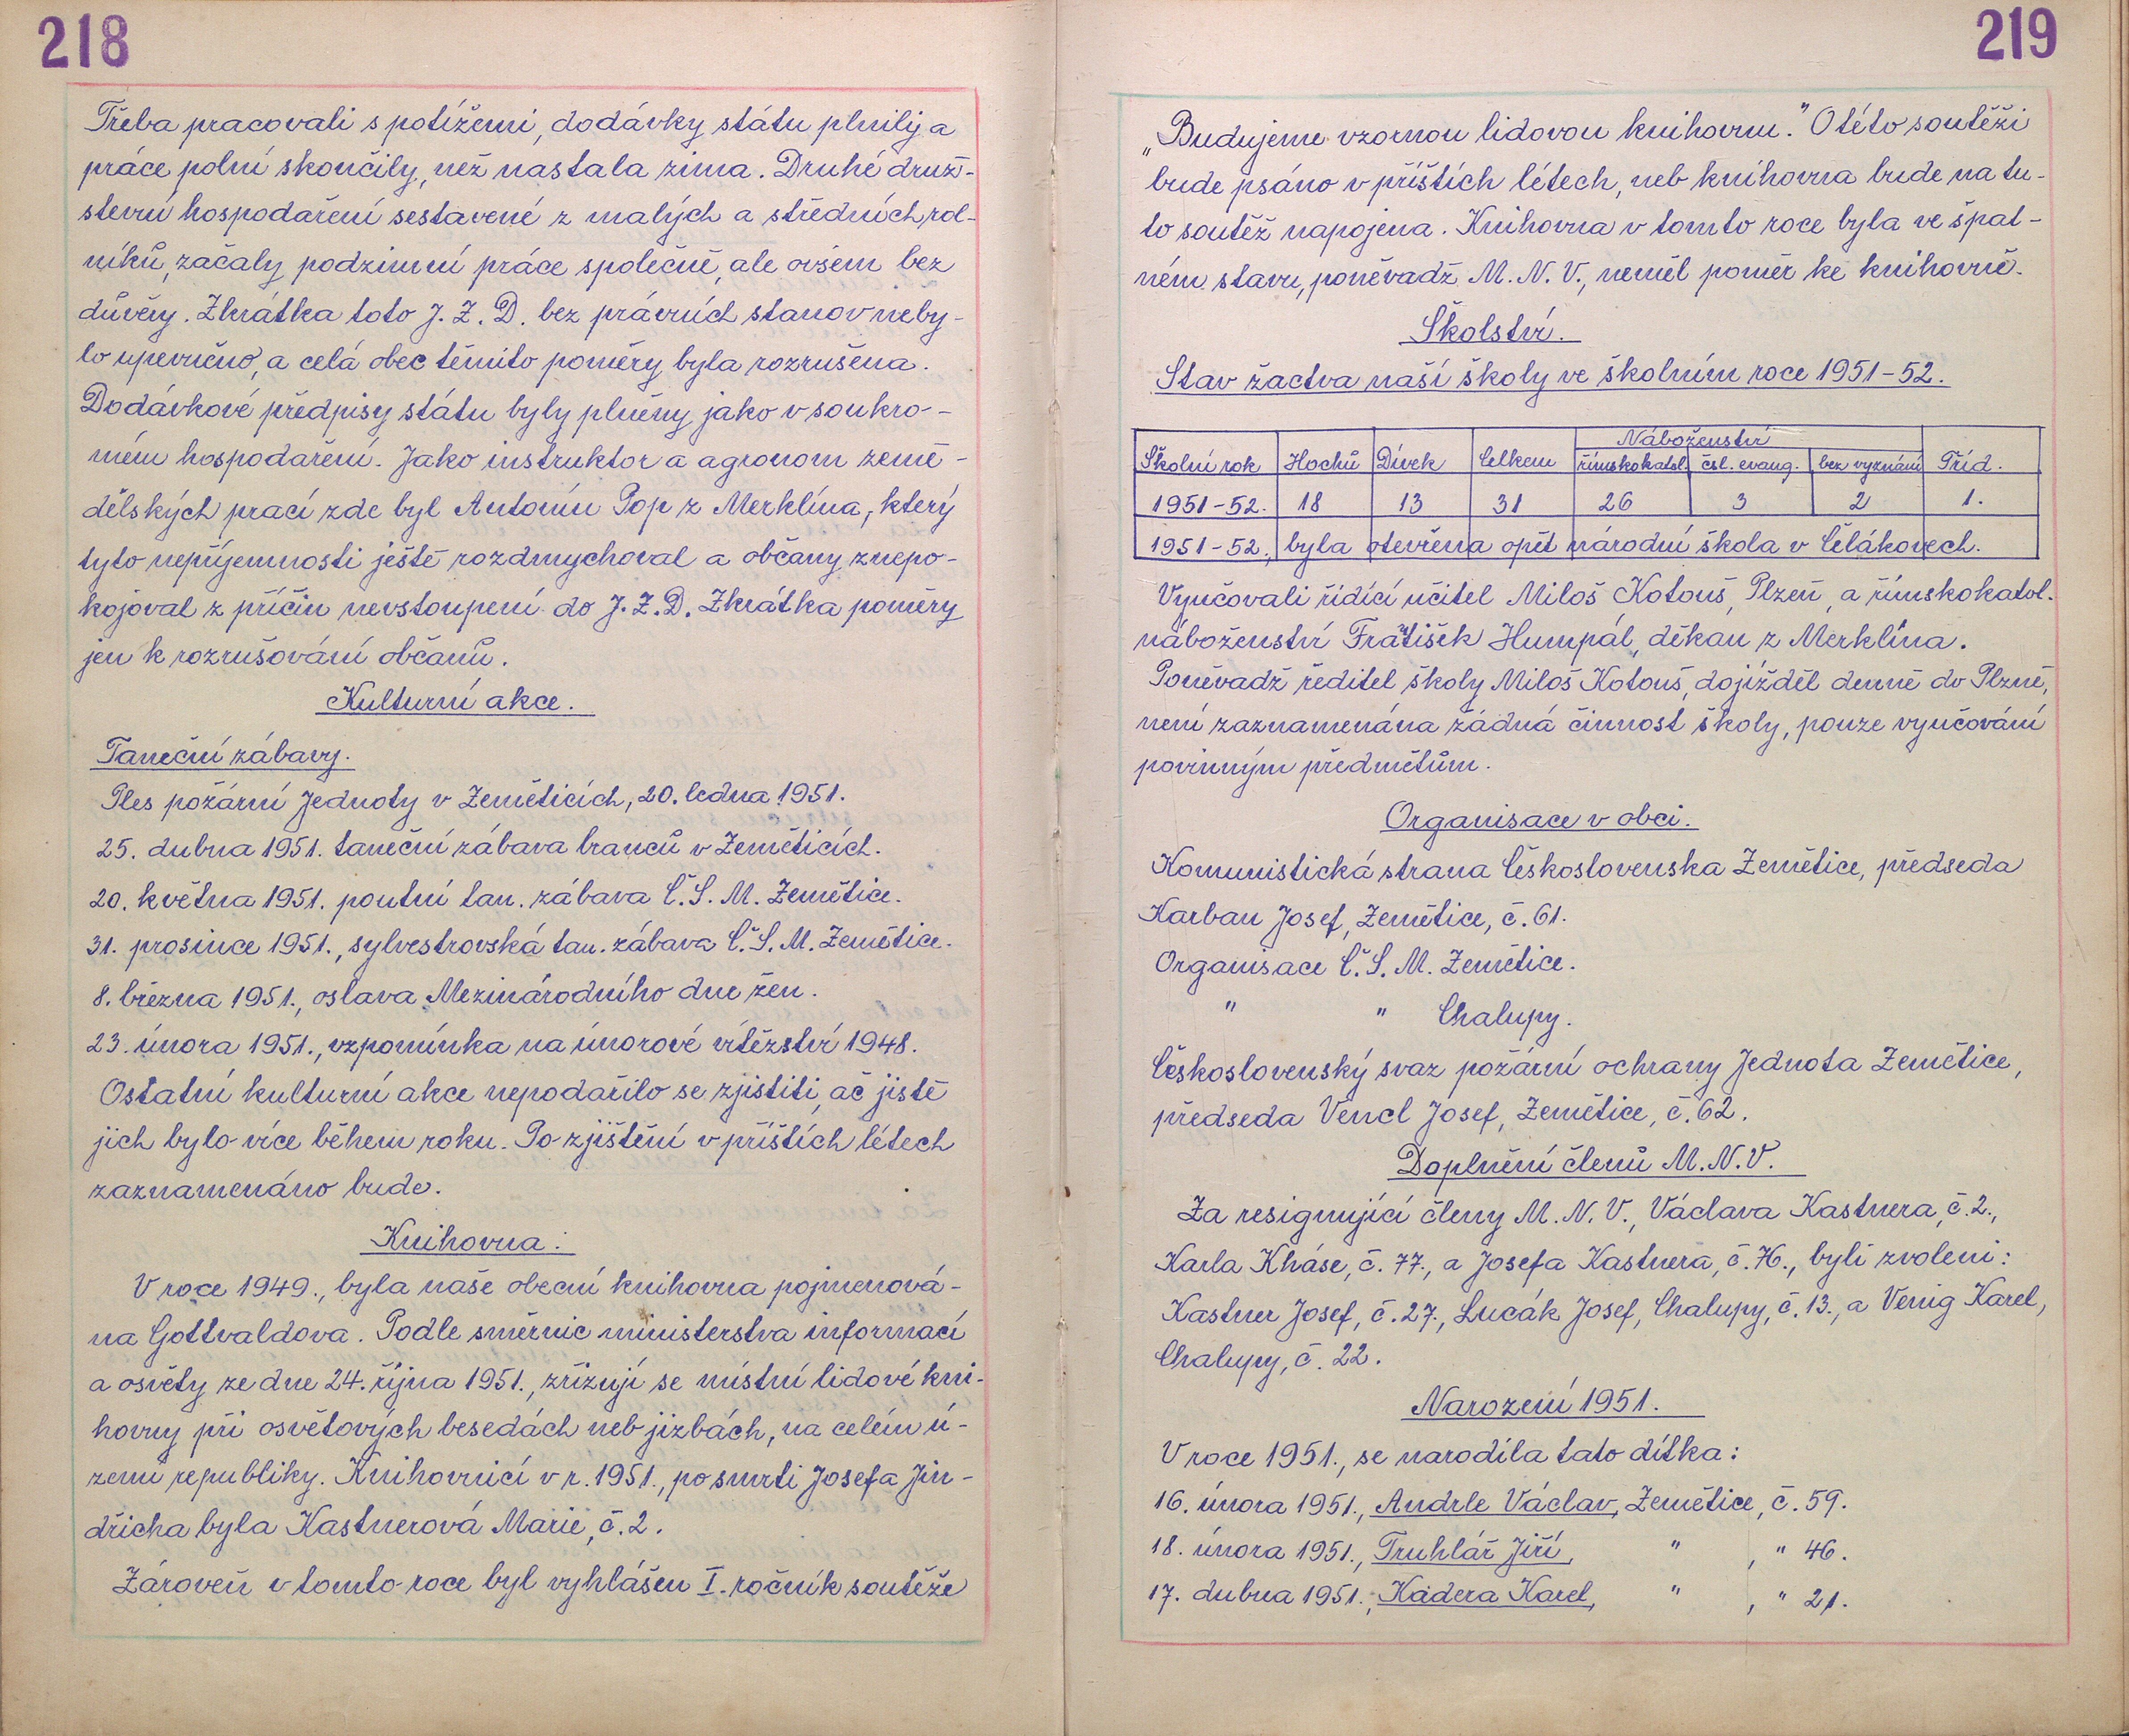 218
Třeba pracovali s potížemi, dodávky státu plnily a
práce polní skončily, než nastala zima. Druhé druž-
stevní hospodaření sestavené z malých a středních rol-
níků, začaly podzimní práce společně, ale ovšem bez
důvěry. Zkrátka toto J. Z. D. bez právních stanov neby-
lo upevněno, a celá obec těmito poměry byla rozrušena.
Dodávkové předpisy státu byly plněny jako v soukro-
mém hospodaření. Jako instruktor a agronom země-
dělských prací zde byl Antonín Pop z Merklína, který
tyto nepříjemnosti ještě rozdmychoval a občany znepo-
kojoval z příčin nevstoupení do J. Z. D. Zkrátka poměry
jen k rozrušování občanů.
Kulturní akce.
Taneční zábavy.
Ples požární Jednoty v Zeměticích, 20. ledna 1951.
25. dubna 1951. taneční zábava branců v Zeměticích.
20. května 1951. poutní tan. zábava Č. S. M. Zemětice.
31. prosince 1951., sylvestrovská tan. zábava Č. S. M. Zemětice.
8. března 1951., oslava Mezinárodního dne žen.
23. února 1951., vzpomínka na únorové vítězství 1948.
Ostatní kulturní akce nepodařilo se zjistiti, ač jistě
jich bylo více během roku. Po zjištění v příštích létech
zaznamenáno bude.
Knihovna:
V roce 1949., byla naše obecní knihovna pojmenová-
na Gottvaldova. Podle směrnic ministerstva informací
a osvěty ze dne 24. října 1951., zřizují se místní lidové kni-
hovny při osvětových besedách neb jizbách, na celém ú-
zemí republiky. Knihovnicí v r. 1951., po smrti Josefa Jin-
dřicha byla Kastnerová Marie, č. 2.
Zároveň v tomto roce byl vyhlášen I. ročník soutěže
219
„Budujeme vzornou lidovou knihovnu." O této soutěži
bude psáno v příštích létech, neb knihovna bude na tu-
to soutěž napojena. Knihovna v tomto roce byla ve špat-
ném stavu, poněvadž M. N. V., neměl poměr ke knihovně.
Školství.
Stav žactva naší školy ve školním roce 1951-52.
Školní rok Hochů Dívek Celkem Náboženství římskokatol. čsl. evang. bez vyznání Tříd.
1951-52. 18 13 31 26 3 2 1.
1951-52, byla otevřena opět národní škola v Čelákovech.
Vyučovali řídící učitel Miloš Kotouš, Plzeň, a římskokatol.
náboženství František Humpál, děkan z Merklína.
Poněvadž ředitel školy Miloš Kotouš, dojížděl denně do Plzně,
není zaznamenána žádná činnost školy, pouze vyučování
povinným předmětům.
Organisace v obci.
Komunistická strana Československa Zemětice, předseda
Karban Josef, Zemětice, č. 61.
Organisace Č. S. M. Zemětice.
" " Chalupy.
Československý svaz požární ochrany Jednota Zemětice,
předseda Vencl Josef, Zemětice, č. 62.
Doplnění členů M. N. V.
Za resignující členy M. N. V., Václava Kastnera, č. 2.,
Karla Kháse, č. 77., a Josefa Kastnera, č. 76., byli zvoleni:
Kastner Josef, č. 27., Lucák Josef, Chalupy, č. 13., a Venig Karel,
Chalupy, č. 22.
Narození 1951.
V roce 1951., se narodila tato dítka:
16. února 1951., Andrle Václav, Zemětice, č. 59.
18. února 1951., Truhlář Jiří, " , " 46.
17. dubna 1951., Kadera Karel, " , " 21.